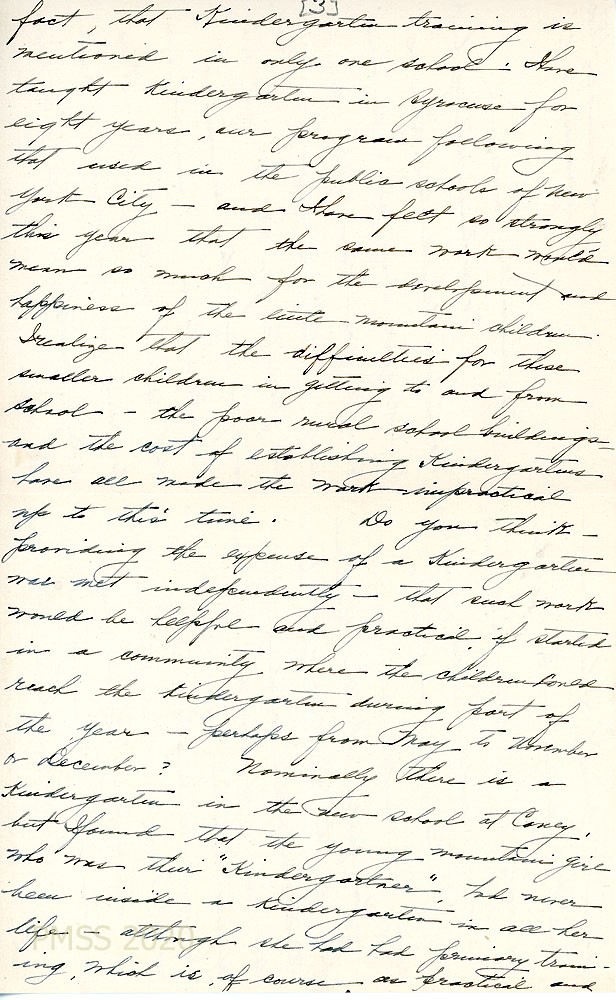 [3]
fact, that Kindergarten training is
mentioned in only one school. I have
taught Kindergarten in Syracuse for
eight years, our program following
that used in the public schools of New
York City – and I have felt so strongly
this year that the same work would
mean so much for the development and
happiness of the little mountain children.
I realize that the difficulties for these
smaller children in getting to and from
school – the poor rural school buildings –
and the cost of establishing Kindergartens
have all made the work impractical
up to this time. Do you think –
providing the expense of a Kindergarten
was met independently – that such work
would be helpful and practical, if started
in a community where the children could
reach the Kindergarten during part of
the year – perhaps from May to November
or December? Nominally there is a
Kindergarten in the new school at Caney,
but I found that the young mountain girl
who was their "Kindergartner", had never
been inside a Kindergarten in all her
life – although she had had primary train-
ing, which is, of course, as practical and
PMSS 2020